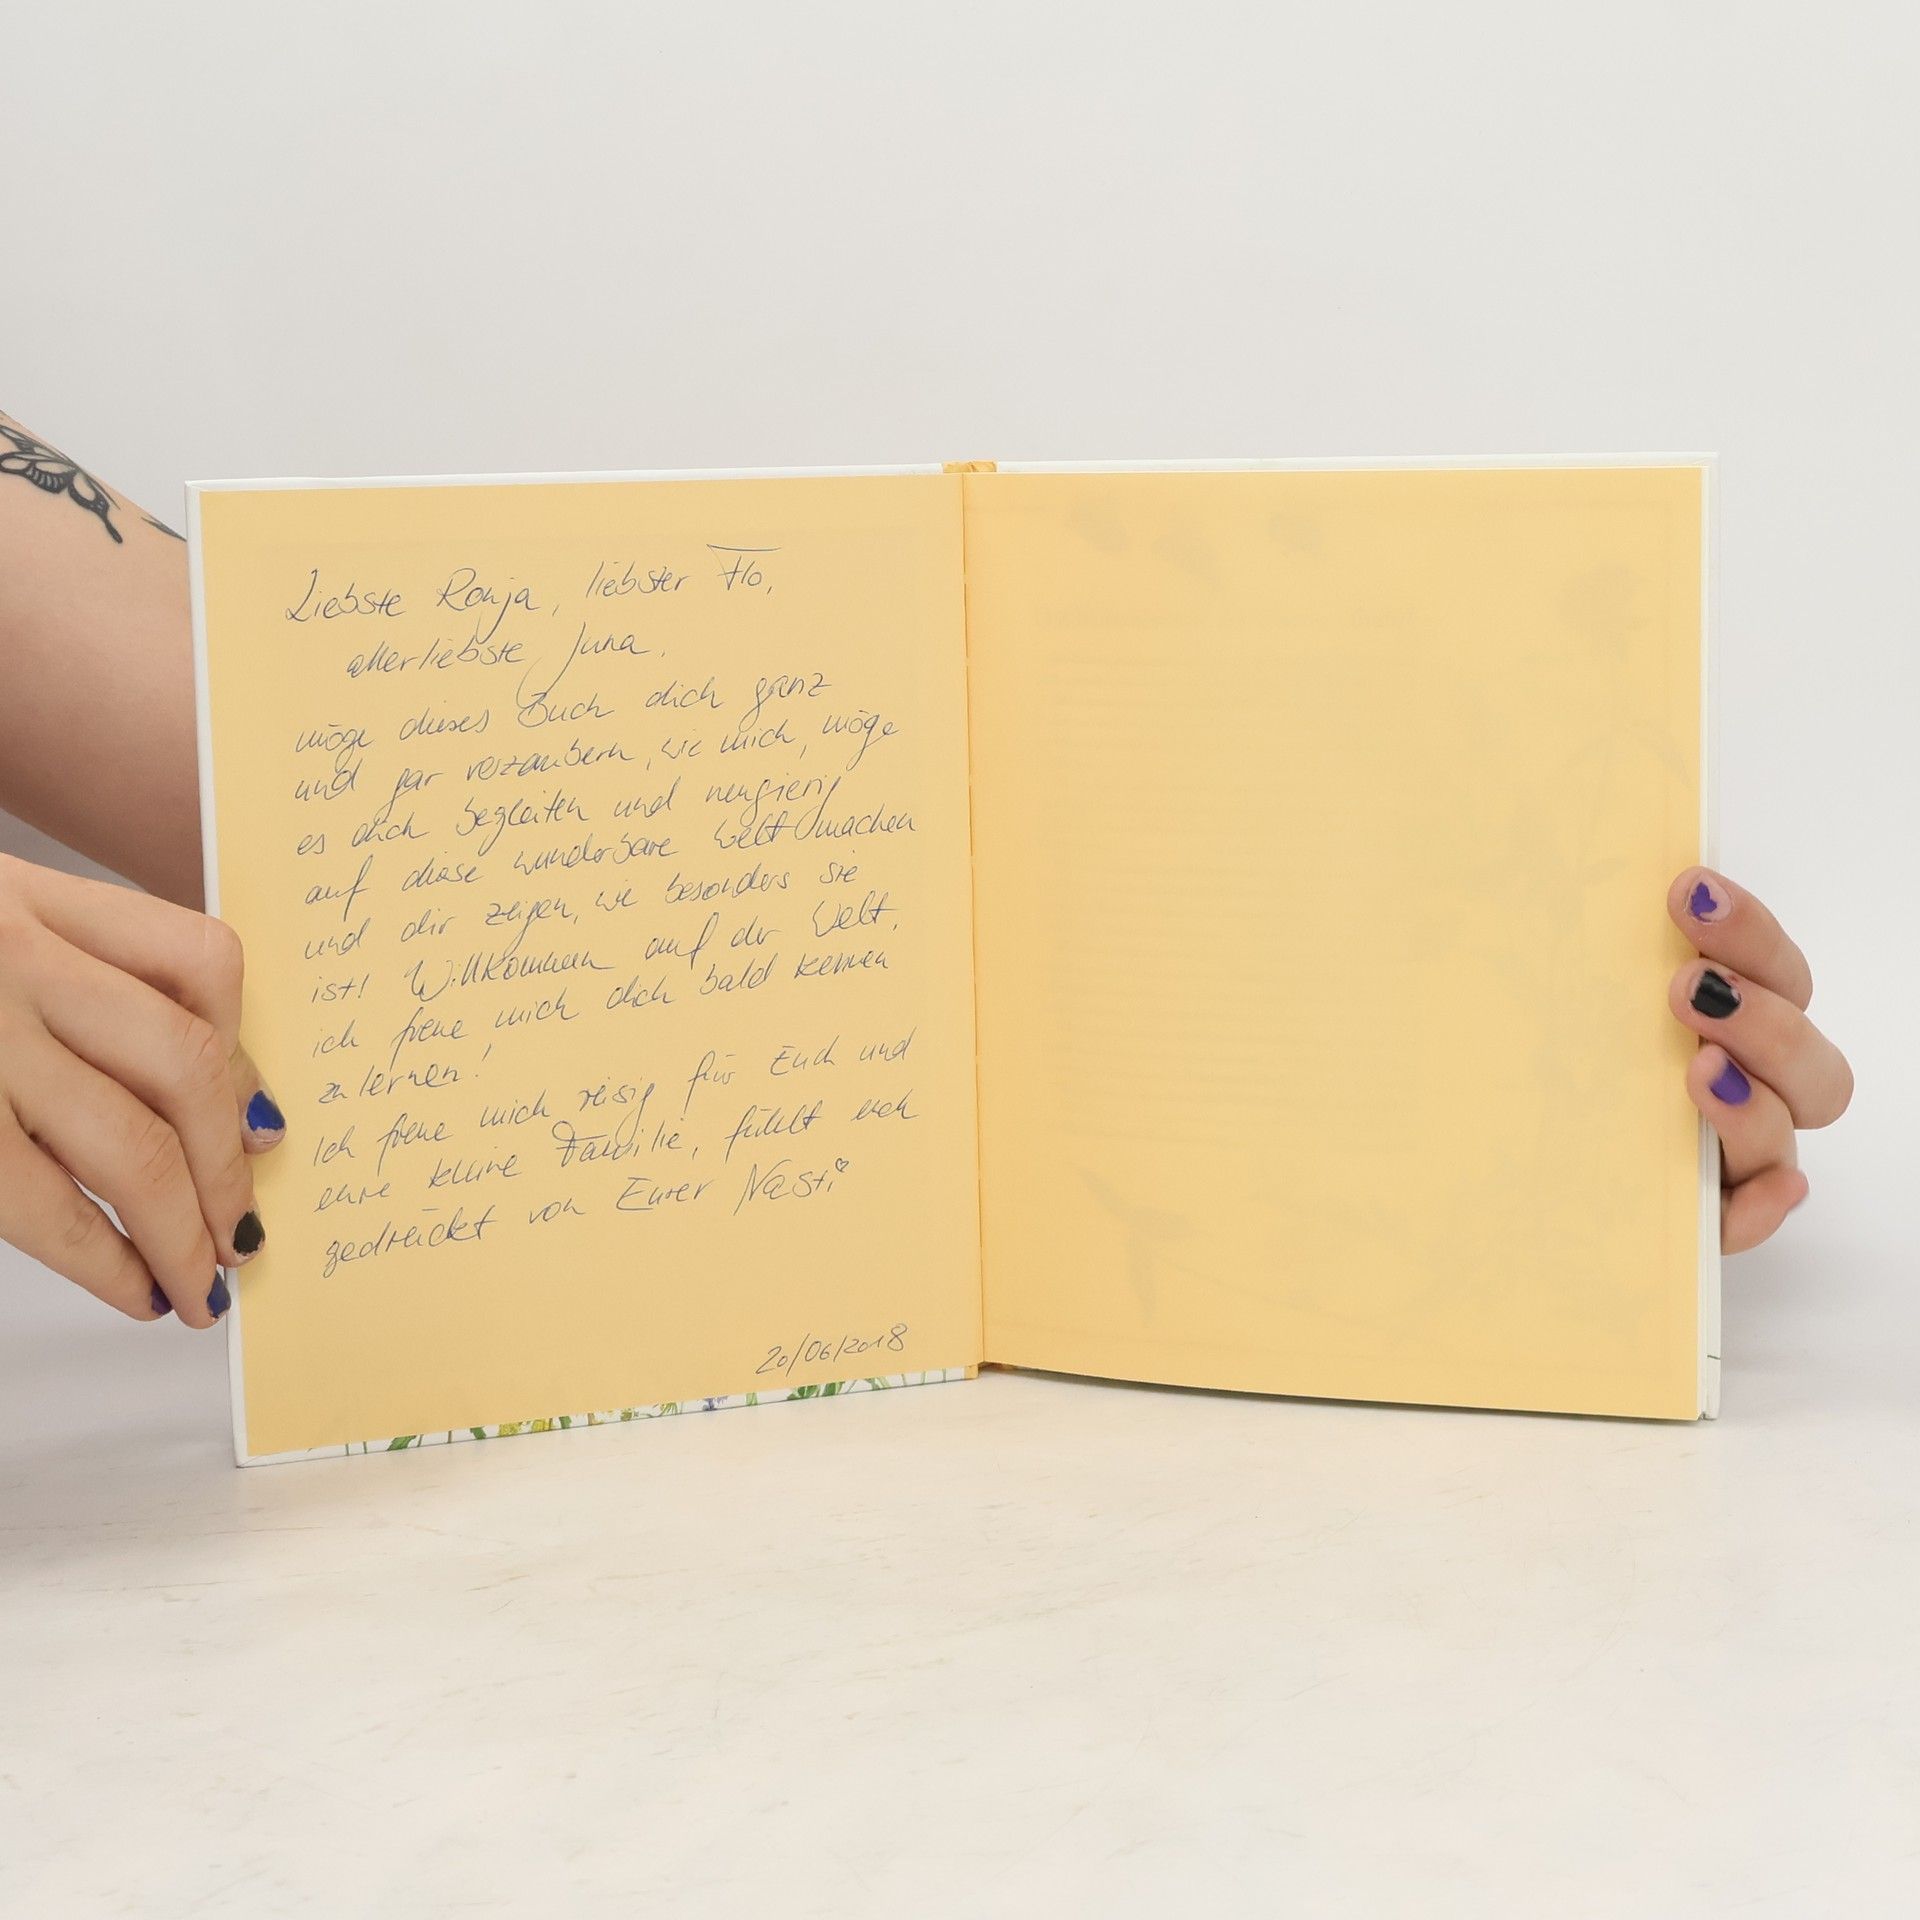 Liebste Ronja, liebster Flo,
allerliebste Juna,
möge dieses Buch dich ganz
und gar verzaubern, wie mich, möge
es dich begleiten und neugierig
auf diese wunderbare Welt machen
und dir zeigen, wie besonders sie
ist! Willkommen auf der Welt,
ich freue mich dich bald kennen
zu lernen!
Ich freue mich riesig für Euch und
eure kleine Familie, fühlt euch
gedrückt von Eurer Nasti
20/06/2018